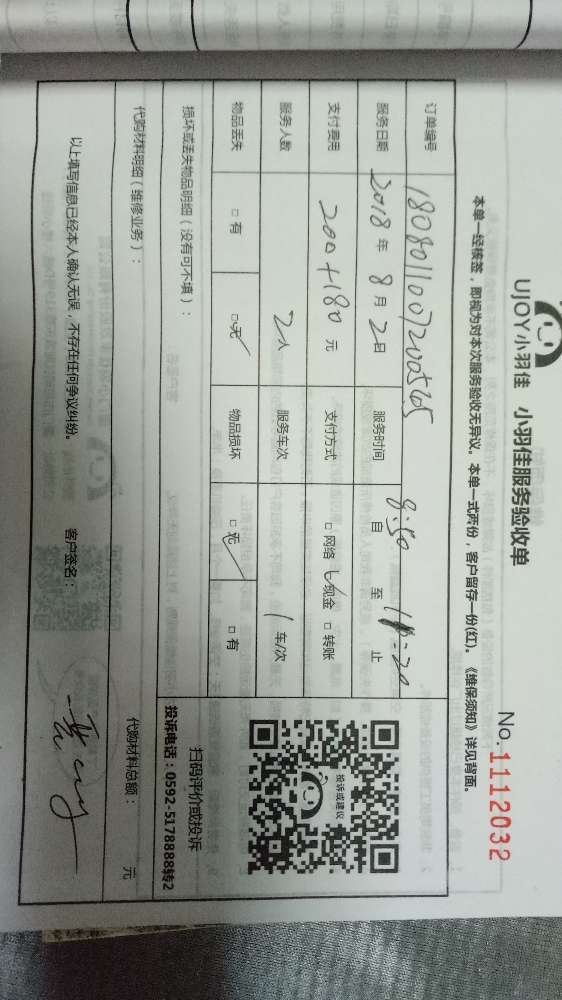 UJOY小羽佳 小羽佳服务验收单
No. 1112032
本单一经核签，即视为对本次服务验收无异议。本单一式两份，客户留存一份(红)。《维保须知》详见背面。
订单编号 1808011007200565
服务日期 2018 年 8 月 2 日 服务时间 8:50 自 至 止
支付费用 200+180 元 支付方式 □ 网络 现金 □ 转账
服务人数 2人 服务车次 1 车/次
物品丢失 □ 有 □ 无 物品损坏 □ 无 □ 有
损坏或丢失物品明细（没有可不填）：
投诉或建议
扫码评价或投诉
投诉电话：0592-5178888转2
代购材料明细（维修业务）： 代购材料总额： 元
以上填写信息已经本人确认无误，不存在任何争议纠纷。 客户签名：